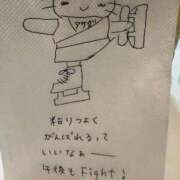 アサダ
粘りつよく
がんばれるって
いいなぁー
午後もFight!